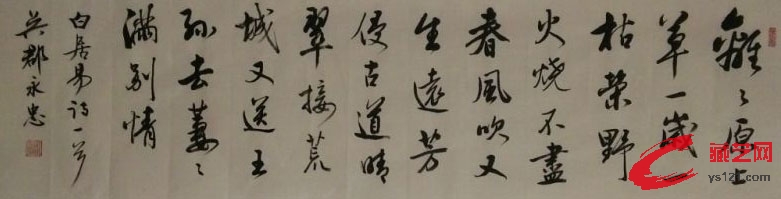 離〻原上
草一歲一
枯榮野
火燒不盡
春風吹又
生遠芳
侵古道晴
翠接荒
城又送王
孫去萋〻
滿別情
白居易詩一首
吳郡永忠
藏艺网